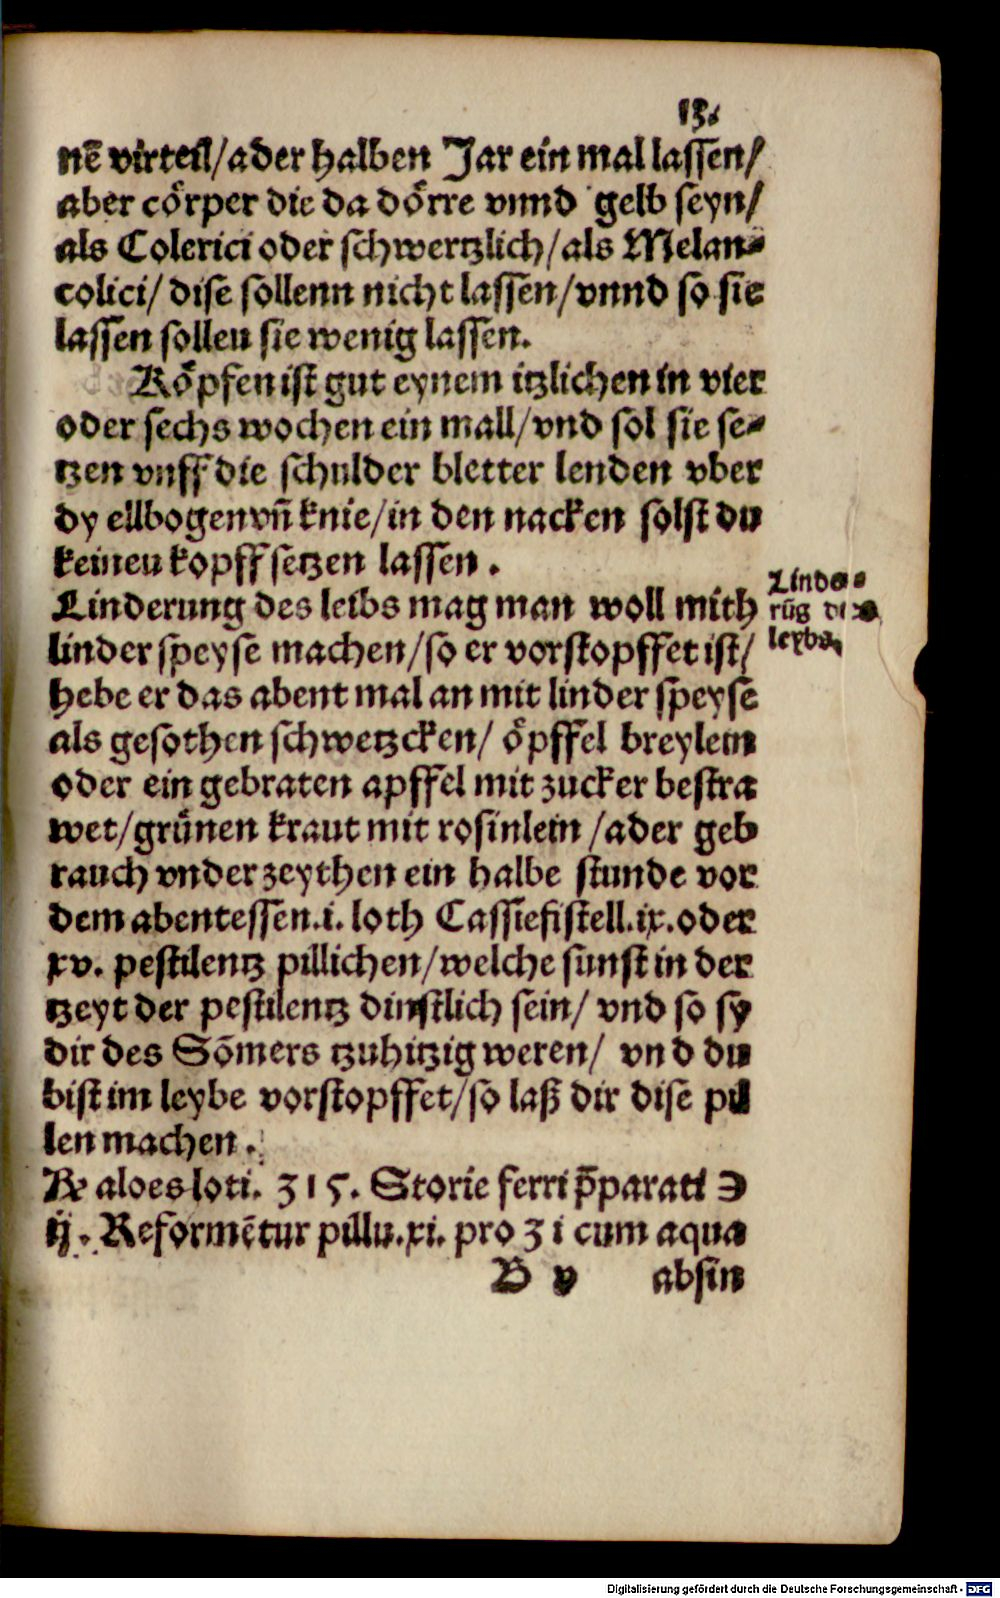 13.
nē virteil/ader halben Jar ein mal lassen/
aber cörper die da dörre vnnd gelb seyn/
als Colerici oder schwertzlich/als Melan-
colici/ dise sollenn nicht lassen/vnnd so sie
lassen sollen sie wenig lassen.
Köpfen ist gut eynem itzlichen in vier
oder sechs wochen ein mall/vnd sol sie se-
tzen vnff die schulder bletter lenden vber
dy ellbogen vn̄ knie/in den nacken solst du
keinen kopff setzen lassen .
Linderung des leibs mag man woll mith
Linde-
rūg des
leybs
linder speyse machen/so er vorstopffet ist/
hebe er das abent mal an mit linder speyse
als gesothen schwetzcken/ öpffel breylein
oder ein gebraten apffel mit zucker bestra
wet/grünen kraut mit rosinlein /ader geb
rauch vnderzeythen ein halbe stunde vor
dem abentessen.i. loth Cassiefistell.ix.oder
xv. pestilentz pillichen/welche sunst in der
tzeyt der pestilentz dinstlich sein/ vnd so sy
dir des Sōmers tzuhitzig weren/ vnd du
bist im leybe vorstopffet/so laß dir dise pil
len machen .
℞ aloes loti. ʒ 1 5. Storie ferri p̄parati ℈
ij. Reformētur pillu.xi. pro ʒ i cum aqua
B v absin
Digitalisierung gefördert durch die Deutsche Forschungsgemeinschaft - DFG